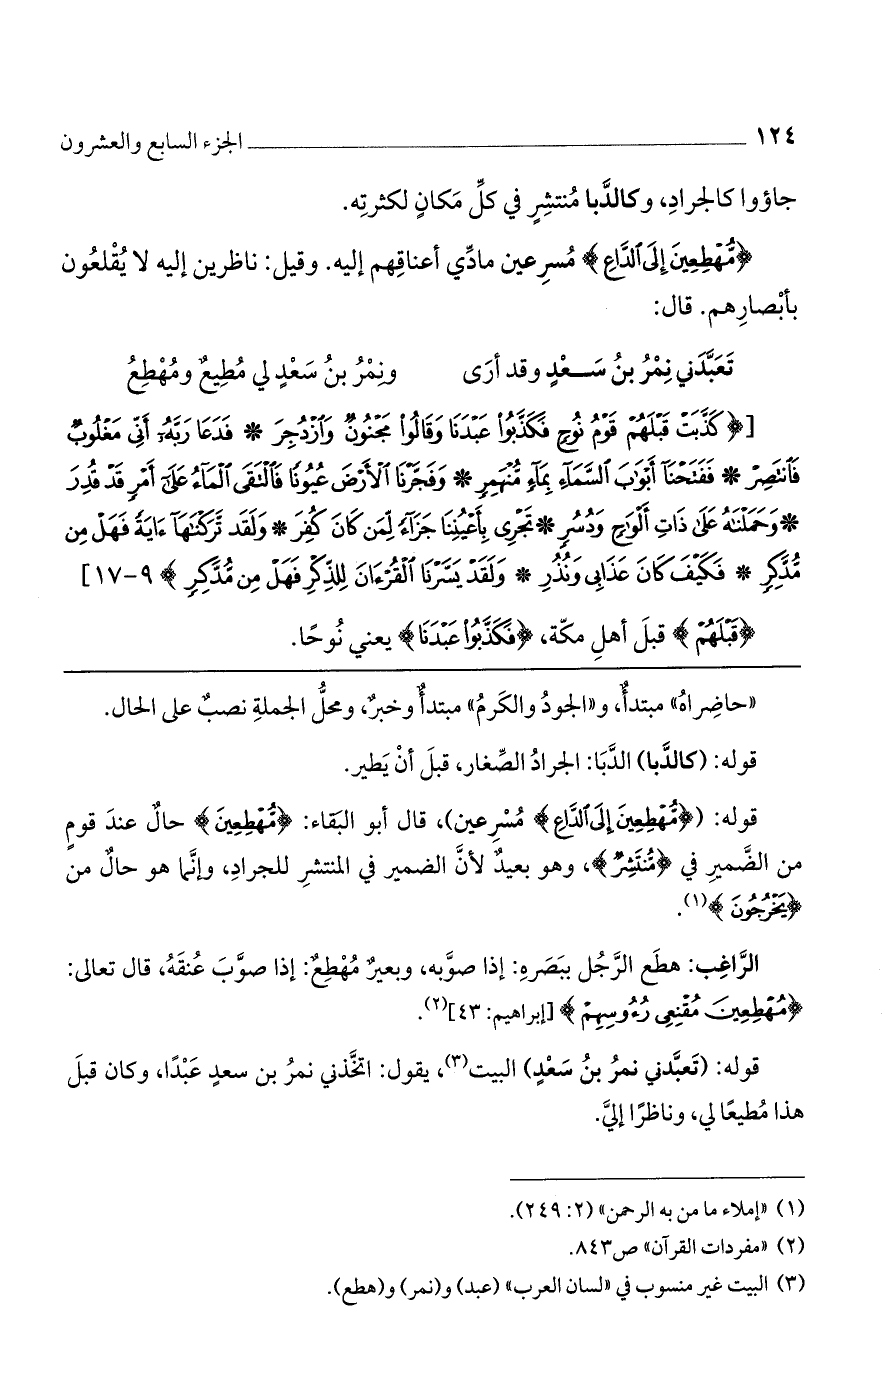 ١٢٤ ــــــــــــــــــــ الجزء السابع والعشرون
جاؤوا كالجرادِ، وكالدَّبا مُنتشِرٍ في كلِّ مَكانٍ لكثرتِه.
﴿مُّهْطِعِينَ إِلَى ٱلدَّاعِ﴾ مُسرِعين مادِّي أعناقِهم إليه. وقيل: ناظرين إليه لا يُقْلعُون
بأبْصارِهم. قال:
تَعَبَّدَني نِمْرُ بنُ سَــعْدٍ وقد أرَى ونِمْرُ بنُ سَعْدٍ لي مُطِيعٌ ومُهْطِعُ
[﴿كَذَّبَتْ قَبْلَهُمْ قَوْمُ نُوحٍ فَكَذَّبُوا۟ عَبْدَنَا وَقَالُوا۟ مَجْنُونٌ وَٱزْدُجِرَ * فَدَعَا رَبَّهُۥٓ أَنِّى مَغْلُوبٌ
فَٱنتَصِرْ * فَفَتَحْنَآ أَبْوَٰبَ ٱلسَّمَآءِ بِمَآءٍ مُّنْهَمِرٍ * وَفَجَّرْنَا ٱلْأَرْضَ عُيُونًا فَٱلْتَقَى ٱلْمَآءُ عَلَىٰٓ أَمْرٍ قَدْ قُدِرَ
* وَحَمَلْنَٰهُ عَلَىٰ ذَاتِ أَلْوَٰحٍ وَدُسُرٍ * تَجْرِى بِأَعْيُنِنَا جَزَآءً لِّمَن كَانَ كُفِرَ * وَلَقَد تَّرَكْنَٰهَآ ءَايَةً فَهَلْ مِن
مُّدَّكِرٍ * فَكَيْفَ كَانَ عَذَابِى وَنُذُرِ * وَلَقَدْ يَسَّرْنَا ٱلْقُرْءَانَ لِلذِّكْرِ فَهَلْ مِن مُّدَّكِرٍ﴾ ٩-١٧]
﴿قَبْلَهُمْ﴾ قبلَ أهلِ مكّة، ﴿فَكَذَّبُوا۟ عَبْدَنَا﴾ يعني نُوحًا.
«حاضِراهُ» مبتدأٌ، و«الجودُ والكَرمُ» مبتدأٌ وخبرٌ، ومحلُّ الجملةِ نصبٌ على الحال.
قوله: (كالدَّبا) الدَّبَا: الجرادُ الصِّغار، قبلَ أنْ يَطير.
قوله: (﴿مُّهْطِعِينَ إِلَى ٱلدَّاعِ﴾ مُسْرِعين)، قال أبو البَقاء: ﴿مُّهْطِعِينَ﴾ حالٌ عندَ قومٍ
من الضَّميرِ في ﴿مُّنتَشِرٌ﴾، وهو بعيدٌ لأنَّ الضمير في المنتشرِ للجرادِ، وإنَّما هو حالٌ من
﴿يَخْرُجُونَ﴾(١).
الرَّاغِب: هطَع الرَّجُل ببَصَرهِ: إذا صوَّبه، وبعيرٌ مُهْطِعٌ: إذا صوَّبَ عُنقَهُ، قال تعالى:
﴿مُهْطِعِينَ مُقْنِعِى رُءُوسِهِمْ﴾ [إبراهيم: ٤٣](٢).
قوله: (تَعبَّدني نمرُ بنُ سَعْدٍ) البيت(٣)، يقول: اتخَّذني نمرُ بن سعدٍ عَبْدًا، وكان قبلَ
هذا مُطيعًا لي، وناظرًا إليَّ.
(١) «إملاء ما من به الرحمن» (٢: ٢٤٩).
(٢) «مفردات القرآن» ص٨٤٣.
(٣) البيت غير منسوب في «لسان العرب» (عبد) و(نمر) و(هطع).